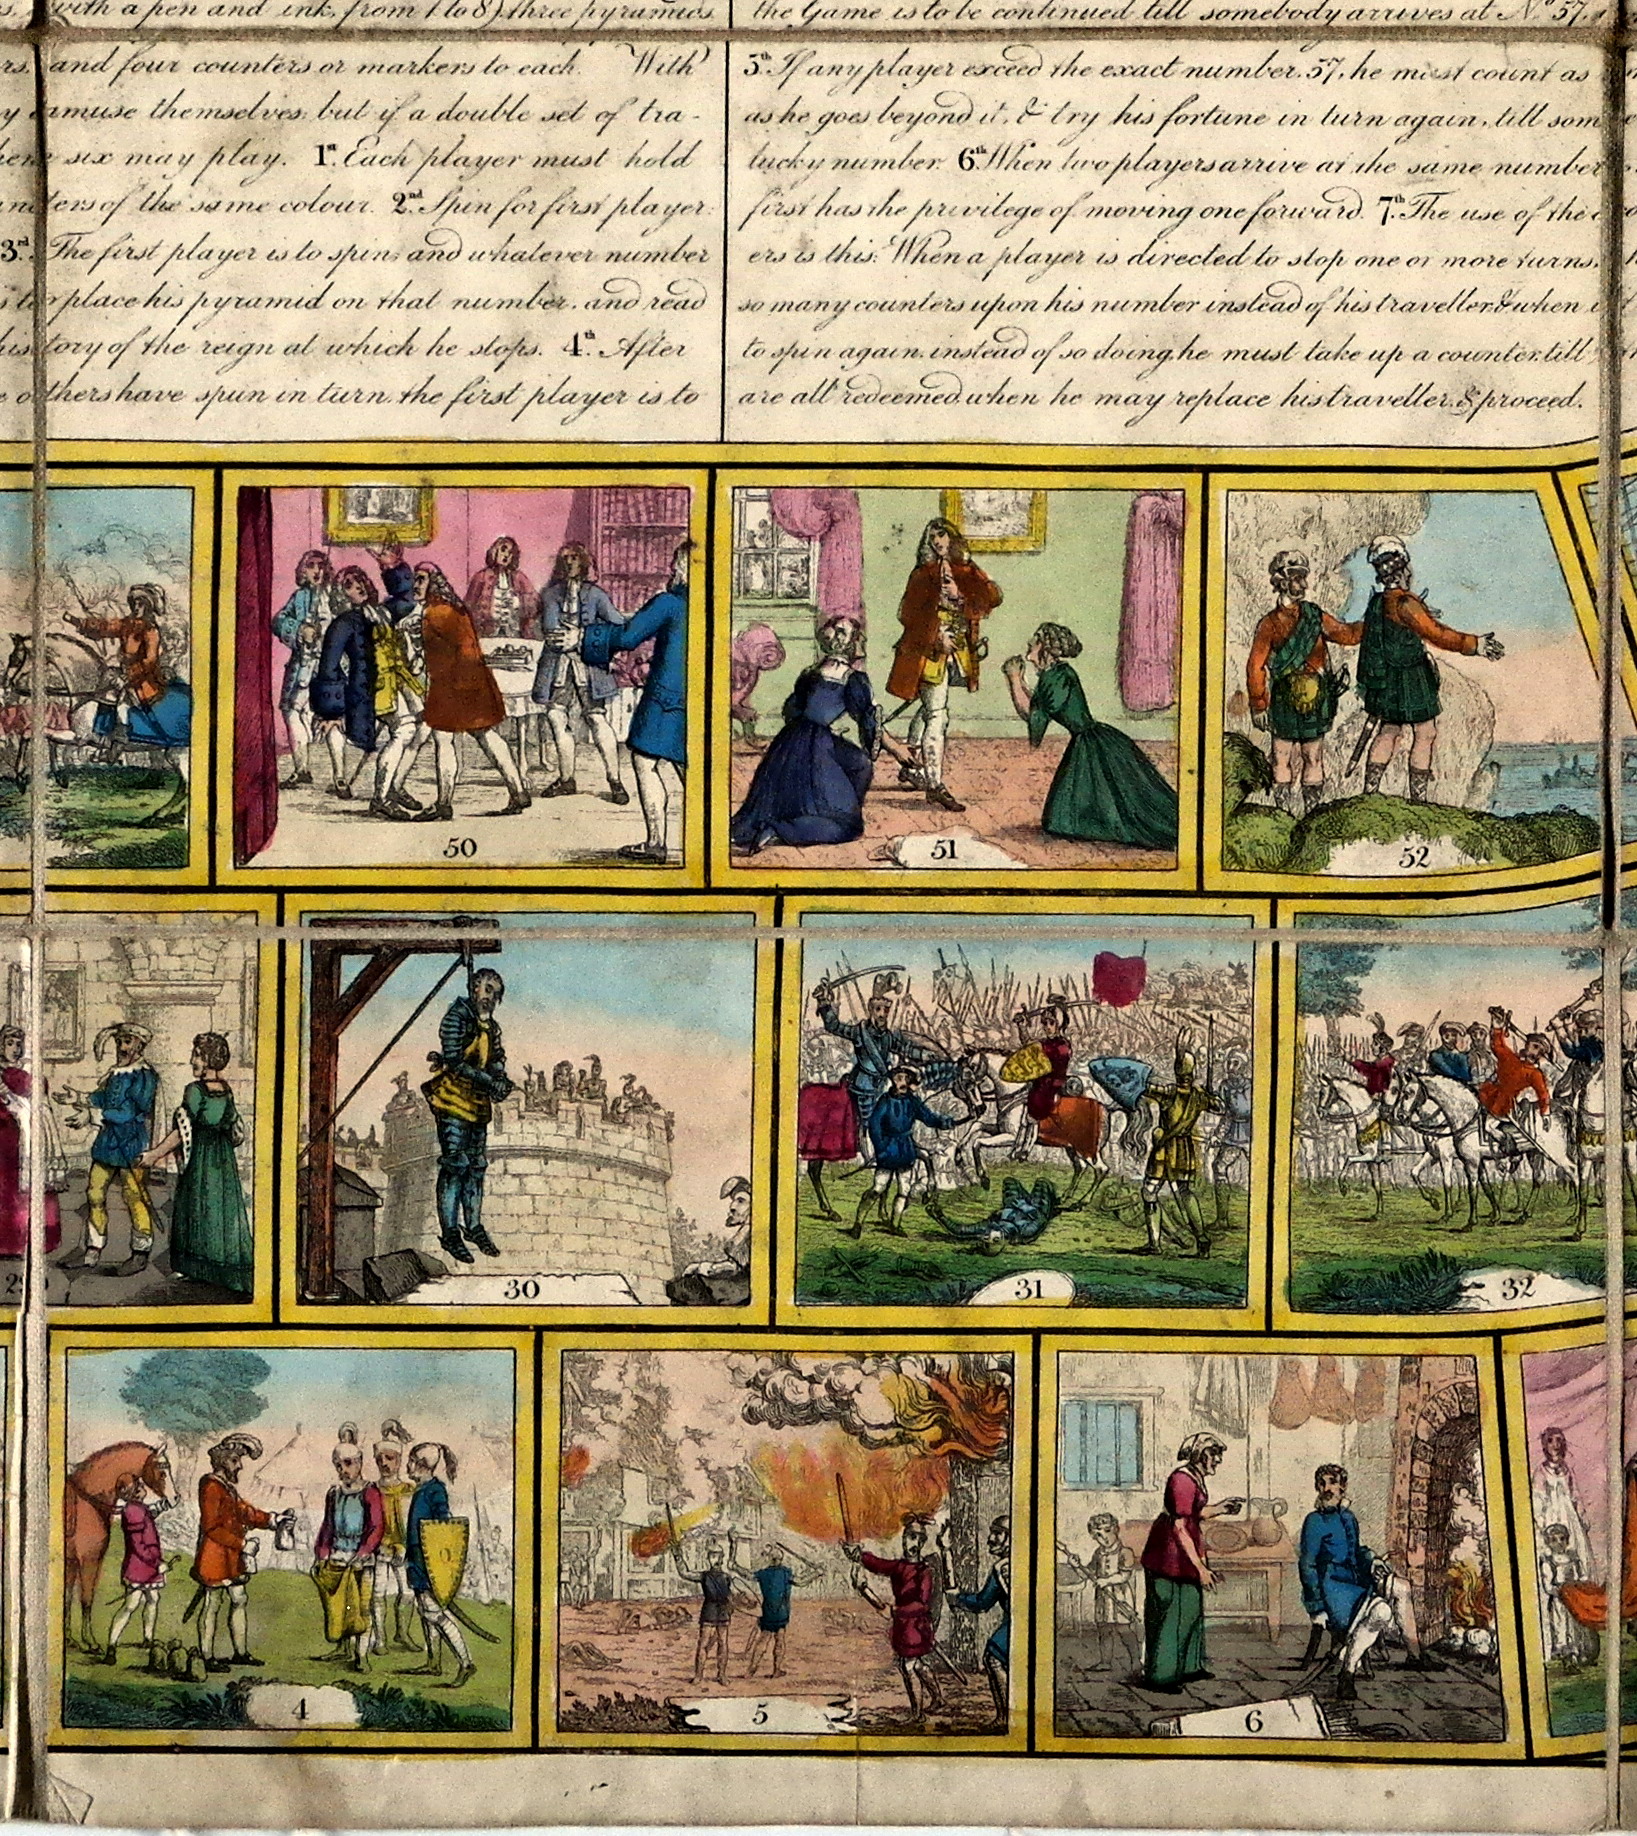 with a pen and ink, from 1 to 8) three pyramids
and four counters or markers to each. With
amuse themselves: but if a double set of tra-
six may play. 1st. Each player must hold
ters of the same colour. 2nd. Spin for first player:
3rd. The first player is to spin; and whatever number
place his pyramid on that number, and read
history of the reign at which he stops. 4th. After
others have spun in turn, the first player is to
the Game is to be continued till somebody arrives at No. 57,
5th If any player exceed the exact number, 57, he must count as
as he goes beyond it, & try his fortune in turn again, till som
lucky number. 6th When two players arrive at the same number
first has the privilege of moving one forward. 7th The use of the
ers is this: When a player is directed to stop one or more turns,
so many counters upon his number instead of his traveller & when
to spin again, instead of so doing, he must take up a counter, till
are all redeemed, when he may replace his traveller, & proceed.
50
51
52
29
30
31
32
4
5
6